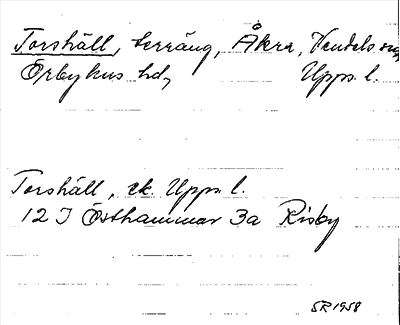 Torshäll, terräng, Åkra, Vendels sn,
Örbyhus hd, Upps. l.
Torshäll, ek Upps. l.
12 I Östhammar 3a Risby
SR 1958